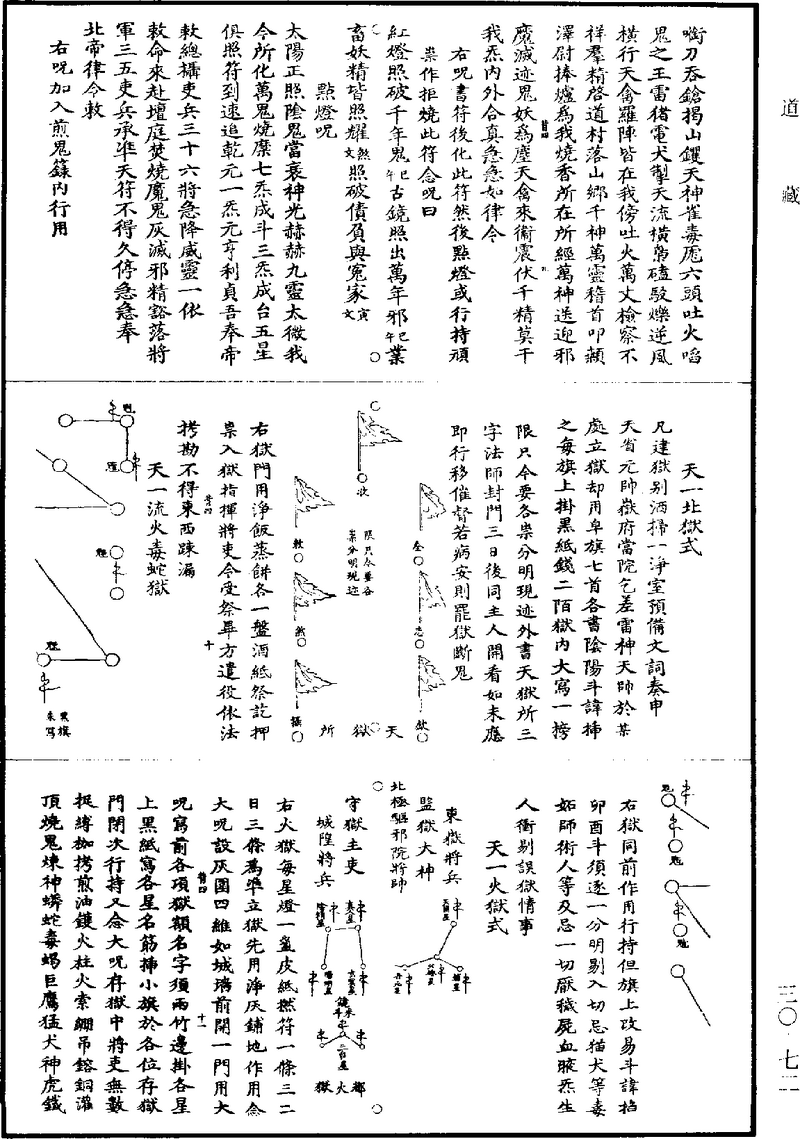 道藏
三〇·七二
啣刀吞鎗揭山钁天神雀毒厖六頭吐火啗
鬼之王雷猪電犬掣天流橫梟磕駮爍逆風
橫行天禽羅陣皆在我傍吐火萬丈檢察不
祥羣精啓道村落山鄉千神萬靈稽首叩顙
澤尉捧爐為我燒香所在所經萬神送迎邪
魔滅迹鬼妖為塵天禽來衝震伏千精莫干
我炁內外合真急急如律令
右呪書符後化此符然後點燈或行持頑
祟作拒燒此符念呪曰
紅燈照破千年鬼午巳古鏡照出萬年邪午巳業
畜妖精皆照耀文煞照破債負與冤家文寅
點燈呪
太陽正照陰鬼當衰神光赫赫九靈太微我
今所化萬鬼燒糜七炁成斗三炁成台五星
俱照符到速追乾元一炁元亨利貞吾奉帝
敕總攝吏兵三十六將急降威靈一依
敕命來赴壇庭焚燒魔鬼灰滅邪精豁落將
軍三五吏兵承準天符不得久停急急奉
北帝律令敕
右呪加入煎鬼籙內行用
天一北獄式
凡建獄別洒掃一淨室預備文詞奏申
天省元帥嶽府當院乞差雷神天帥於某
處立獄却用皁旗七首各書陰陽斗諱揷
之每旗上掛黑紙錢二陌獄內大寫一牓
限只今要各祟分明現迹外書天獄所三
字法師封門三日後同主人開看如未應
即行移催督若病安則罷獄斷鬼
限只今要各
祟分明現迹
天獄所
右獄門用淨飯蒸餅各一盤酒紙祭訖押
祟入獄指揮將吏令受祭畢方遣役依法
拷勘不得東西踈漏
天一流火毒蛇獄
右獄同前作用行持但旗上改易斗諱掐
卯酉斗須逐一分明剔入切忌猫犬等毒
妬師術人等及忌一切厭穢屍血腋炁生
人衝剔誤獄情事
天一火獄式
東嶽將兵
監獄大神
北極驅邪院將帥
守獄主吏
城隍將兵
獄火鄉
右火獄每星燈一盞皮紙撚符一條三二
日三條為準立獄先用淨灰鋪地作用念
大呪設灰圍四維如城墻前開一門用大
呪寫前各項獄額名字須兩竹邊掛各星
上黑紙寫各星名筋揷小旗於各位存獄
門閉次行持又念大呪存獄中將吏無數
捉縛枷拷煎油鑊火柱火索綳吊鎔銅灌
頂燒鬼煉神蟒蛇毒蝎巨鷹猛犬神虎鐵